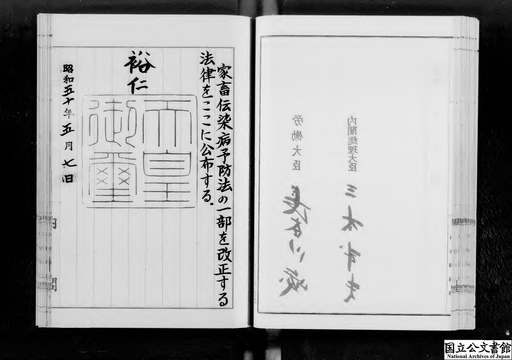 内閣総理大臣 三木武夫
労働大臣 長谷川峻
家畜伝染病予防法の一部を改正する
法律をここに公布する。
裕仁
天皇
御璽
昭和五十年五月七日
内閣
国立公文書館
National Archives of Japan